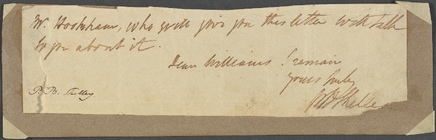 Mr. Hookham, who will give you this letter will talk
to you about it.
Dear Williams I remain
yours truly
PBShelley
P. B. Shelley